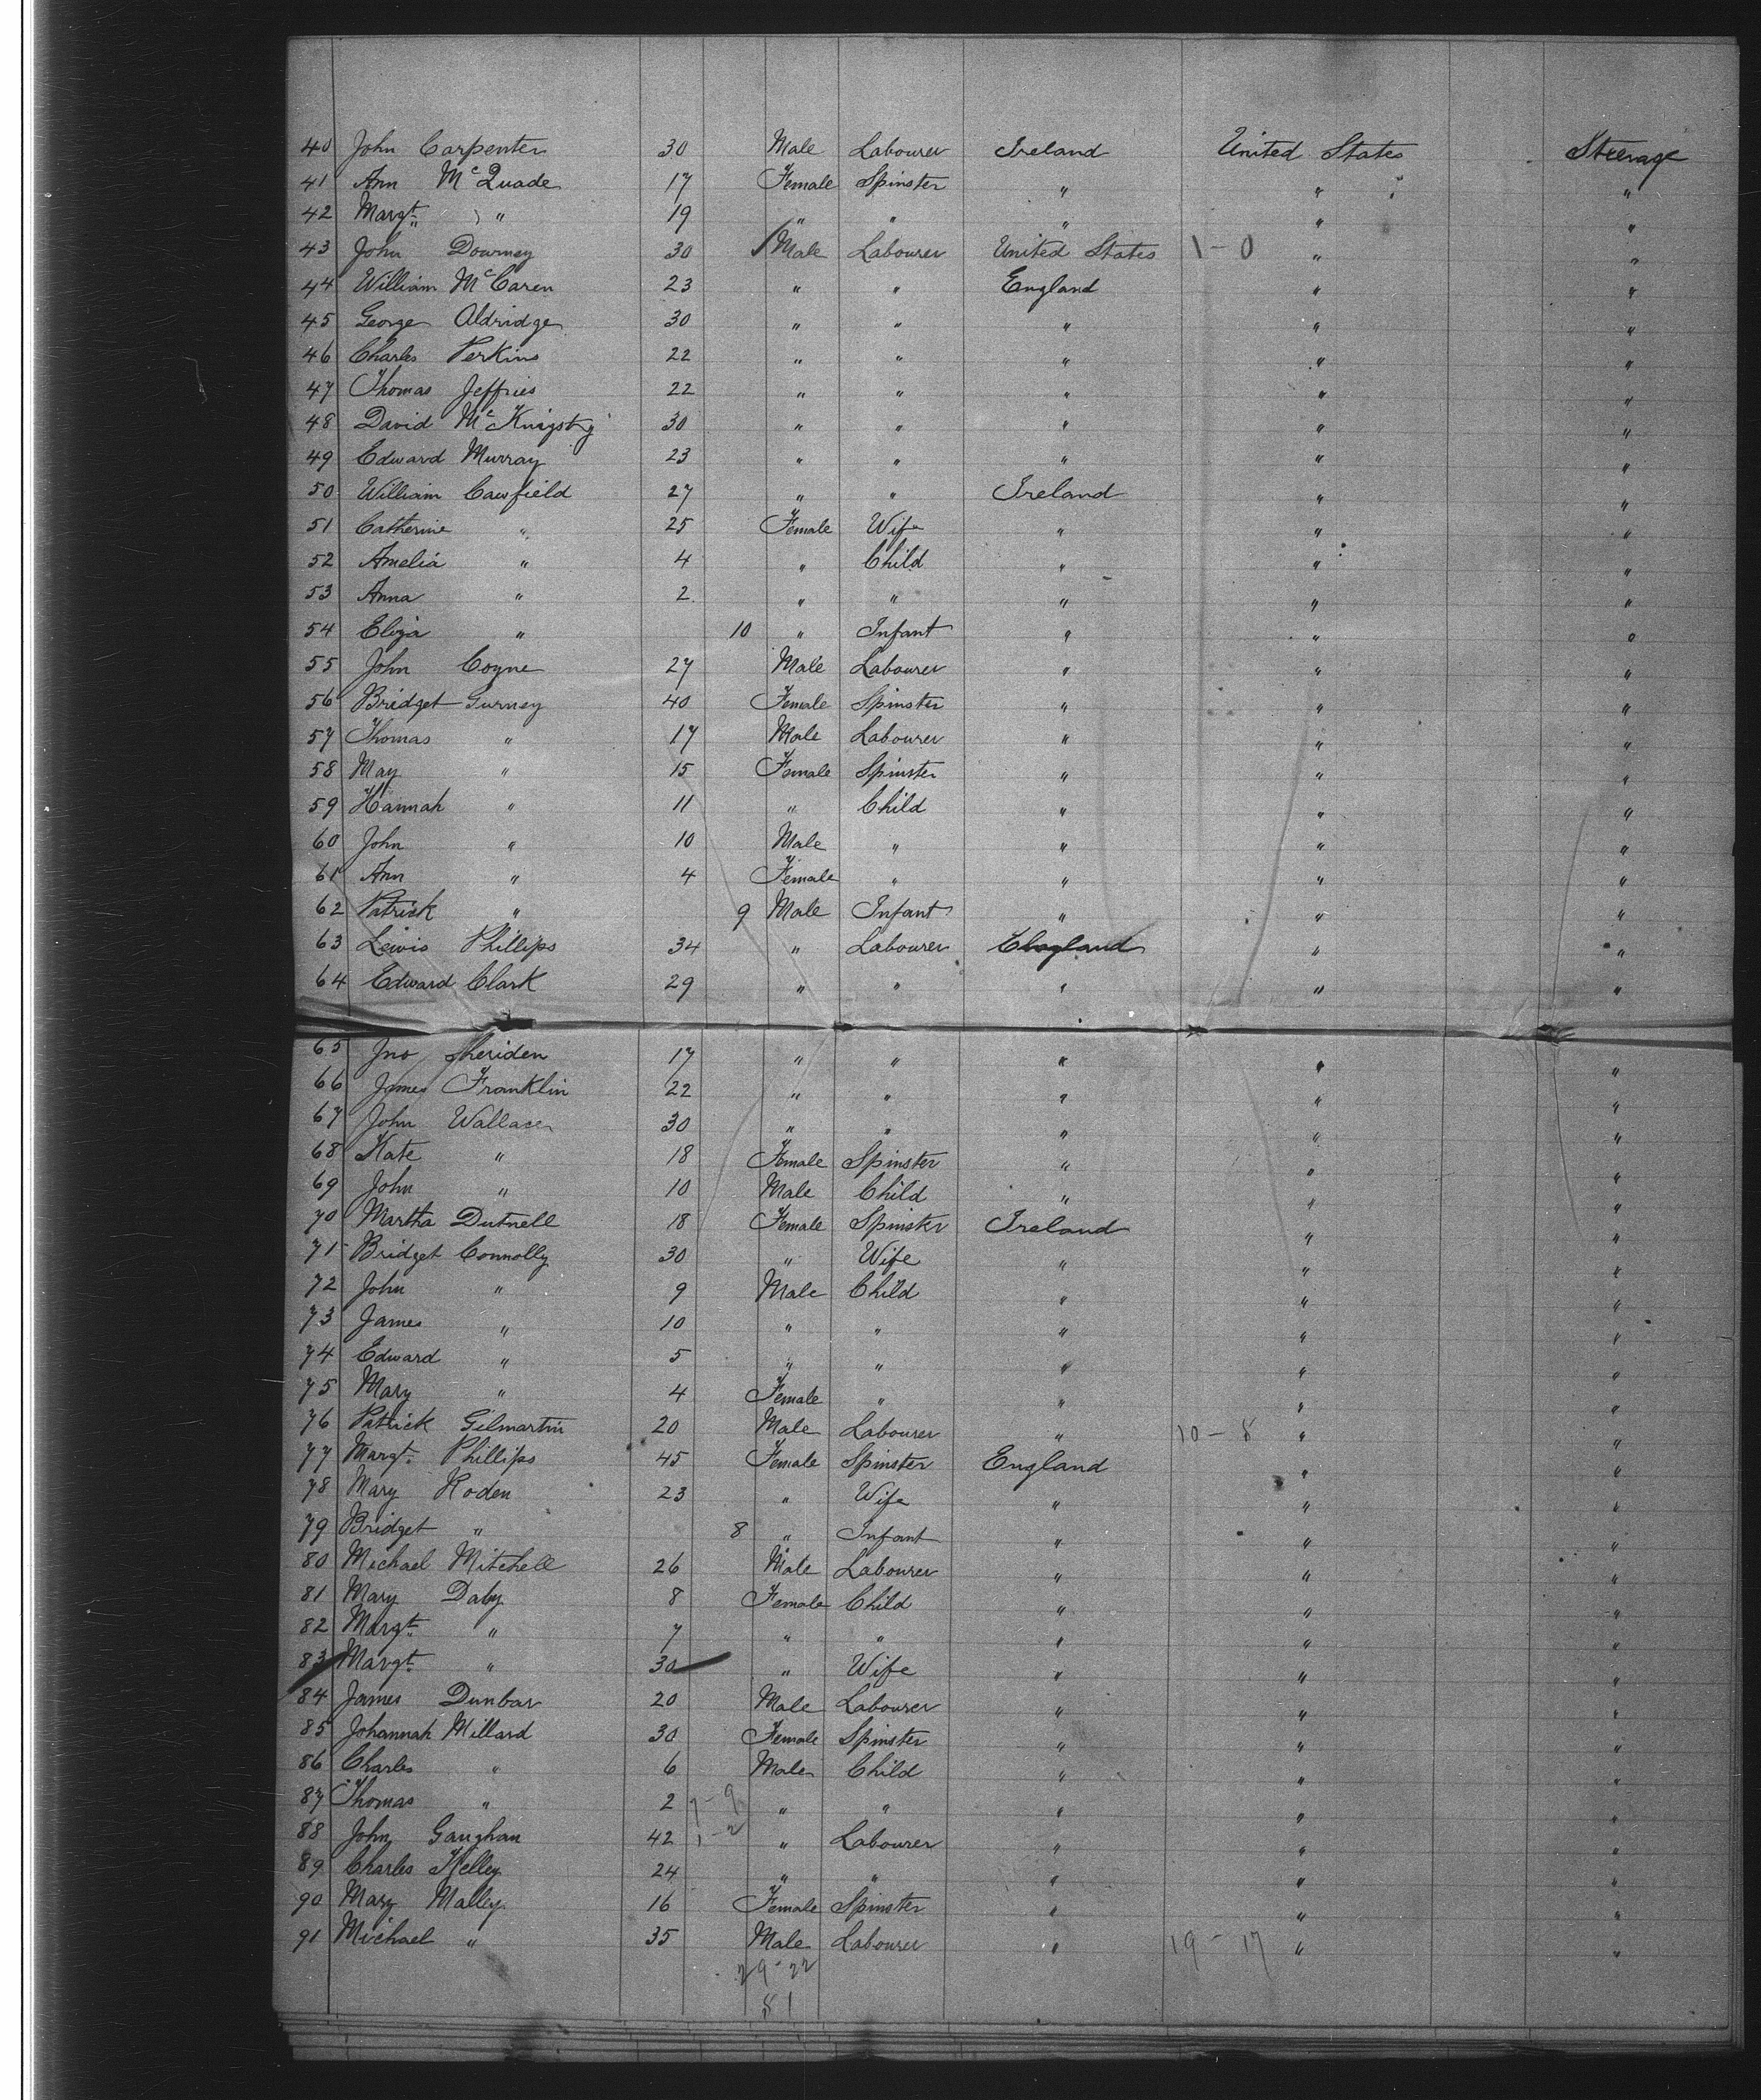 40 John Carpenter 30 Male Labourer Ireland United States Steerage
41 Ann McQuade 17 Female Spinster " " "
42 Margt " 19 " " " " "
43 John Downey 30 Male Labourer United States 1-0 " "
44 William McCaren 23 " " England " "
45 George Aldridge 30 " " " " "
46 Charles Perkins 22 " " " " "
47 Thomas Jeffries 22 " " " " "
48 David 30 " " " " "
49 Edward Murray 23 " " " " "
50 William Cawfield 27 " " Ireland " "
51 Catherine " 25 Female Wife " " "
52 Amelia " 4 " Child " " "
53 Anna " 2 " " " " "
54 Eliza " 10 " Infant " " "
55 John Coyne 27 Male Labourer " " "
56 Bridget Gurney 40 Female Spinster " " "
57 Thomas " 17 Male Labourer " " "
58 May " 15 Female Spinster " " "
59 Hannah " 11 " Child " " "
60 John " 10 Male " " " "
61 Ann " 4 Female " " " "
62 Patrick " 9 Male Infant " " "
63 Lewis Phillips 34 " Labourer England " "
64 Edward Clark 29 " " " " "
65 Jno Sheriden 17 " " " " "
66 James Franklin 22 " " " " "
67 John Wallace 30 " " " " "
68 Kate " 18 Female Spinster " " "
69 John " 10 Male Child " " "
70 Martha Dutnell 18 Female Spinster Ireland " "
71 Bridget Connolly 30 " Wife " " "
72 John " 9 Male Child " " "
73 James " 10 " " " " "
74 Edward " 5 " " " " "
75 Mary " 4 Female " " " "
76 Patrick Gilmartin 20 Male Labourer " 10-8 " "
77 Margt. Phillips 45 Female Spinster England " "
78 Mary Roden 23 " Wife " " "
79 Bridget " 8 " Infant " " "
80 Michael Mitchell 26 Male Labourer " " "
81 Mary Daby 8 Female Child " " "
82 Margt. " 7 " " " " "
83 Margt. " 30 " Wife " " "
84 James Dunbar 20 Male Labourer " " "
85 Johannah Millard 30 Female Spinster " " "
86 Charles " 6 Male Child " " "
87 Thomas " 2 7-9 " " " " "
88 John Gaughan 42 1-2 " Labourer " " "
89 Charles Kelley 24 " " " " "
90 Mary Malley 16 Female Spinster " " "
91 Michael " 35 Male Labourer " 19-17 " "
29-22
81